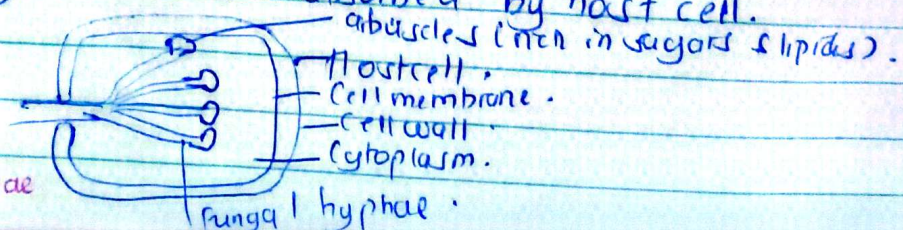 by host cell.
arbuscles (rich in sugars & lipids).
Hostcell.
Cell membrane.
Cell wall.
Cytoplasm.
de
fungal hyphae.